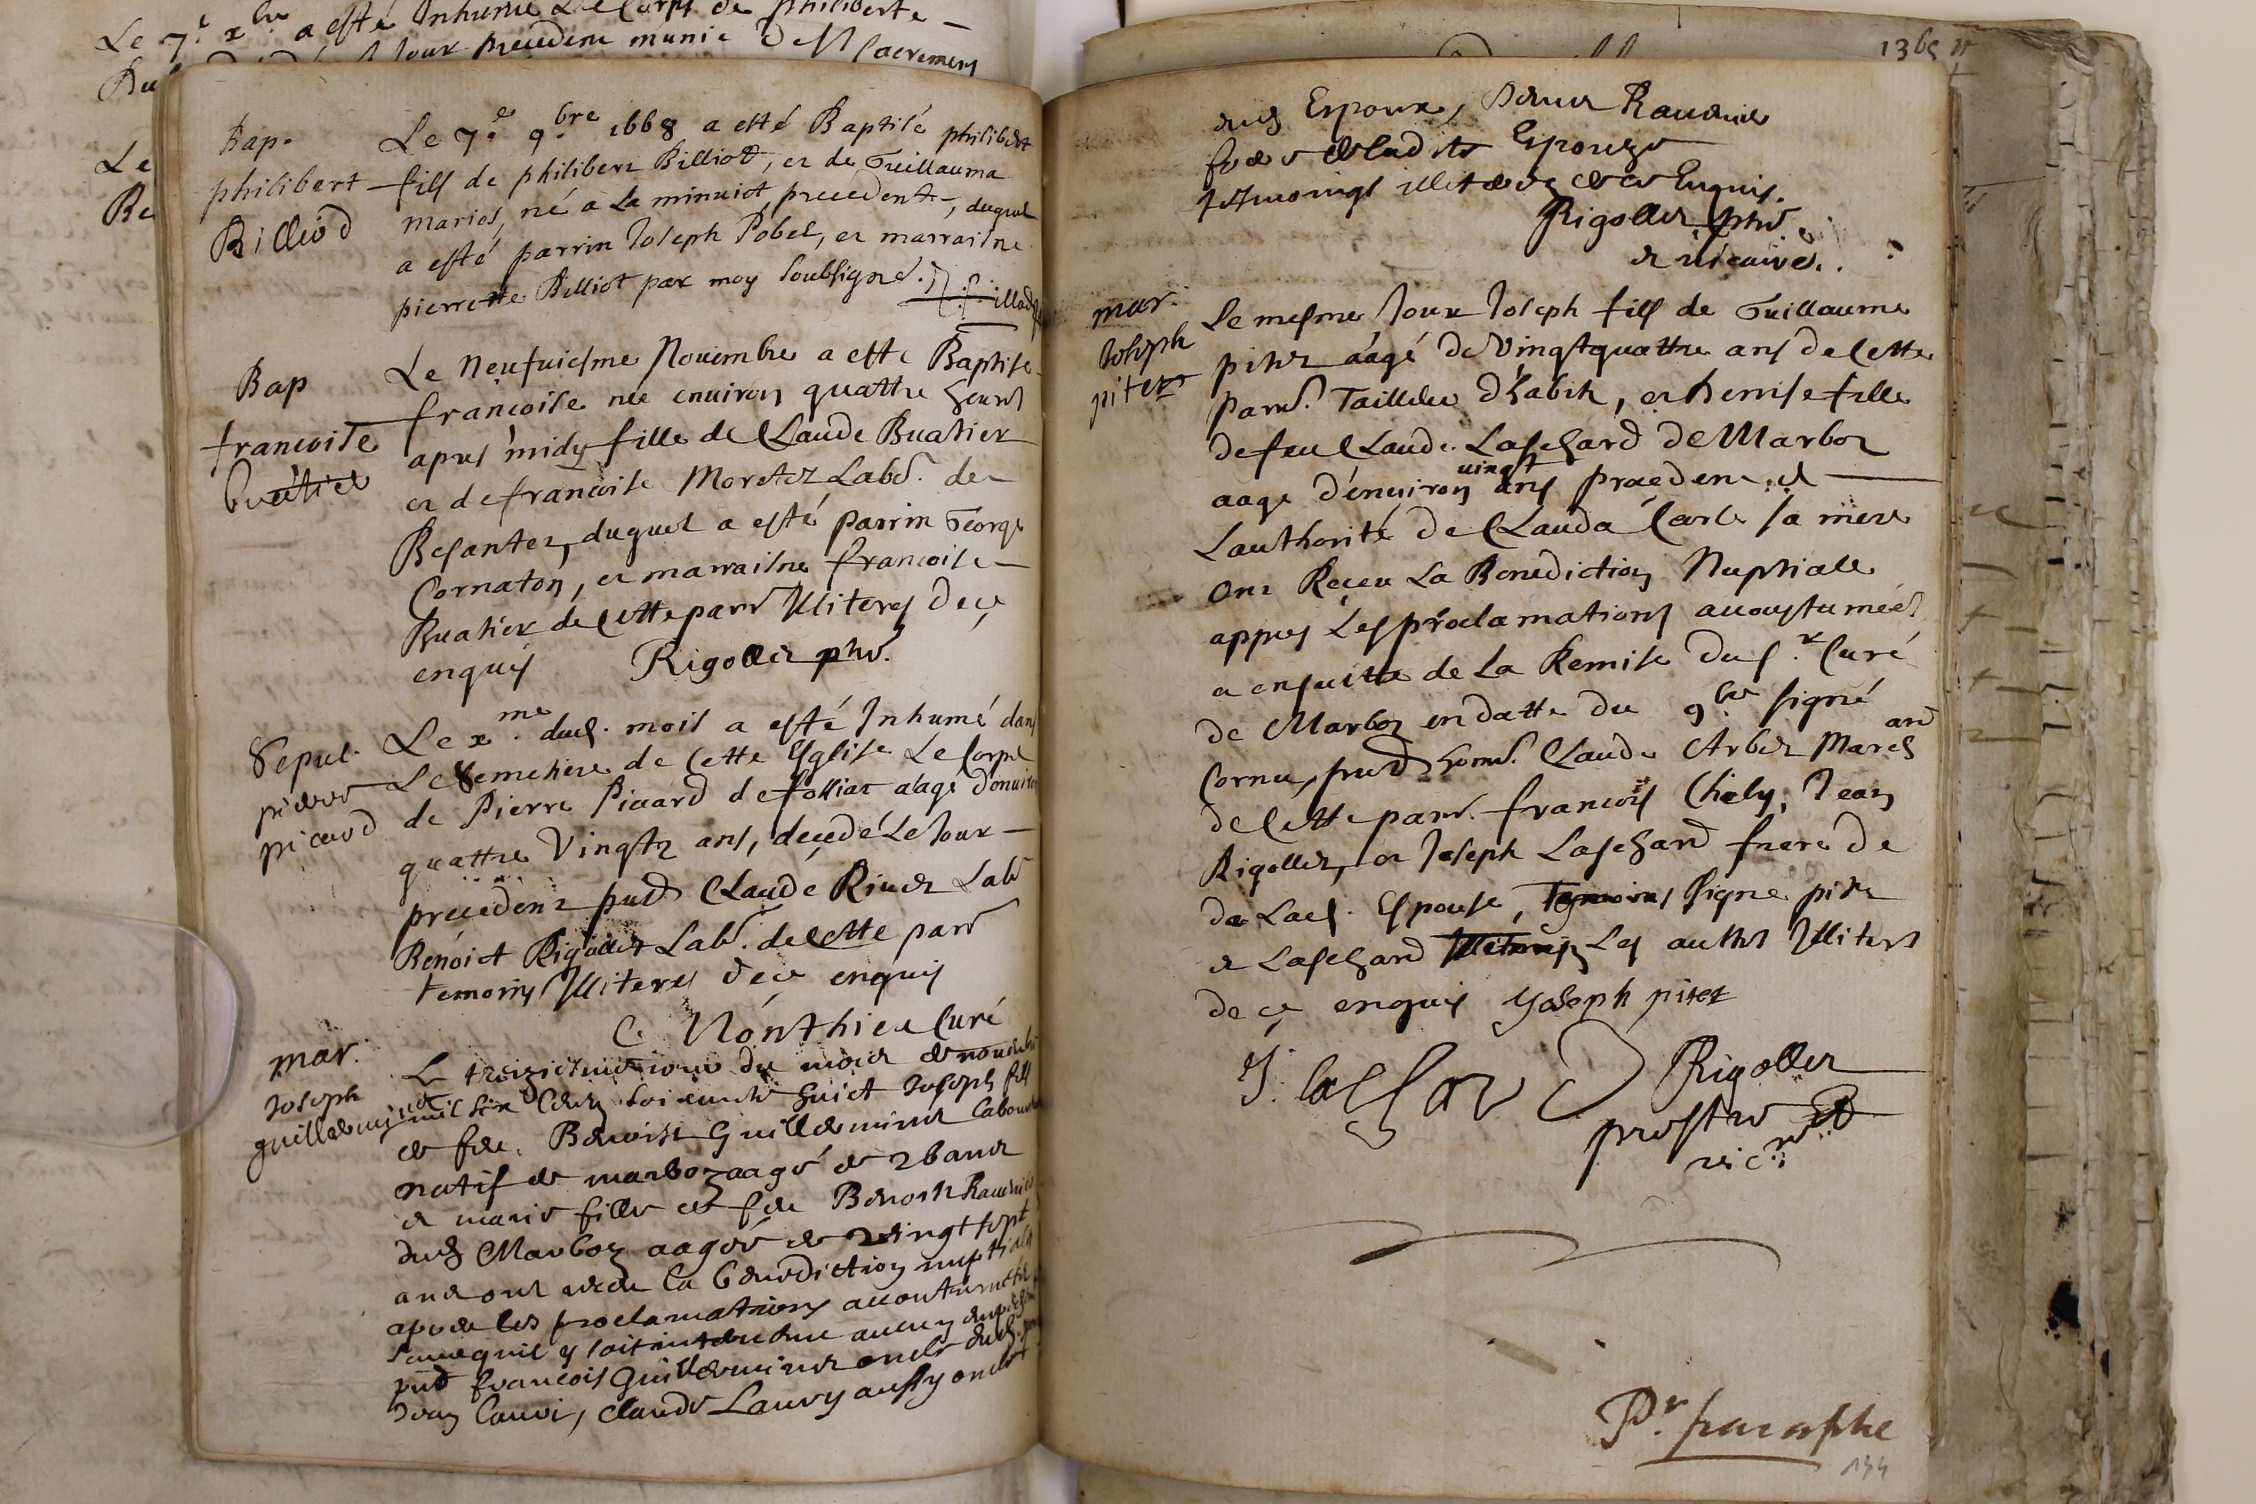 Le 7.e xbre a esté Inhumé Le Corps de philiberte
jour precedent munie des Sacremens
Le
Be
Bap.
philibert
Billiod
Le 7.e 9.bre 1668 a esté Baptisé philibert
fils de philibert Billiod, et de Guillauma
maries, né a La minuict precedent, duquel
a esté parrin Joseph Pobel, et marraisne
pierrette Billiot par moy soubsigné.
Bap
francoise
buatier
Le neufuiesme Nouembre a esté Baptise
francoise née enuiron quattre heures
apres midy fille de Claude Buatier
et de francoise Moretet Labr. de
Besantet, duquel a esté parrin George
Cornaton, et marraisne francoise
Buatier de Cette parr Illiteres de ce
enquis Rigollet pbr.
Sepul.
pierre
picard
Le x.me dud. mois a esté Inhumé dans
Le Semetiere de Cette Esglise Le Corps
de Pierre Picard de folliat a'agé d'enuiron
quattre Vingtz ans, decedé Le Jour
precedent pnts Claude Riuet Labr
Benoict Rigollet Labr. de Cette parr
temoins Illiteres de ce enquis
C. Nonthier Curé
mar.
Joseph
guillermin
Le treiziesme iour du mois de nouembre
mil six Cents soixante huict Joseph fils
de feu Benoist Guillerminet Laboureur
natif de marboz aagé de 26 ans
et marie fille de feu Benoist Rauenie
dud Marboz aagée de vingt sept
ans ont receu la benediction nuptiale
apres les proclamations accoutumées
sans quil y soit interuenue aucun empeschement
pnts francois Guillerminet oncle dud.
Jean Caurei, Claude Laury aussy oncle
1365
dud Espoux, Denis Rauenie
frere de ladite Espouze
tesmoings illiteres de ce Enquis.
Rigollet pbr
et vicaire.
mar.
Joseph
pitet
Le mesme Jour Joseph fils de Guillaume
pitet aagé de Vingtquattre ans de Cette
parr. Tailleur d'habit, et Denise fille
de feu Claude Laschard de Marboz
aage d'enuiron vingt ans procedent de
Lauthorité de Clauda Carle sa mere
ont Receu La Benediction Nuptiale
appres Les proclamations accoustumées
a ensuitte de La Remise du S.r Curé
de Marboz en datte du 9bre signé
Cornu, pnts hono. Claude Arbet March and
de Cette parr. francois Chely, Jean
Rigollet, et Joseph Laschard frere de
de Lad. Espouse, Temoins signe pitet
et Laschard Illiteres Les aultres Illiteres
de ce enquis Joseph pitet
J. laschard
Rigollet
prestre et
vic.re
Pr. paraphe
144